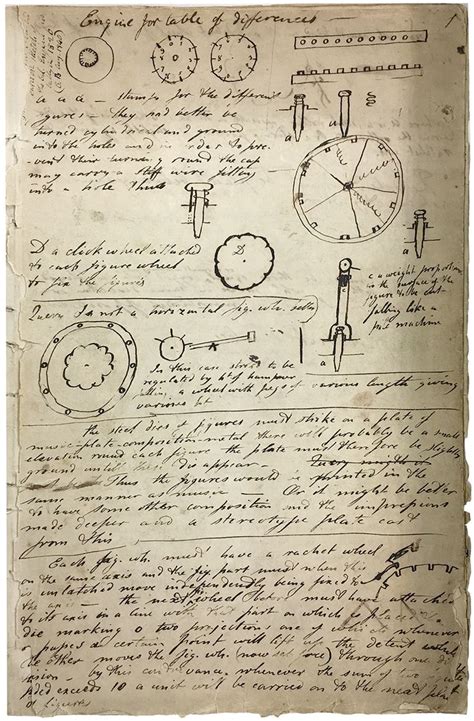 Engine for table of differences
1
a a a – stamps for the different
figures – they had better be
turned cylindrical and ground
into the holes and in order to pre-
vent their turning round the cap
may carry a stiff wire falling
into a hole thus
a
a
D
D a click wheel attached
to each figure wheel
to fix the figures
c a weight proportion
to the surface of the
figure to be cut
falling like a
pile machine
a
Query if not a horizontal fig. wh.
In this case stroke to be
regulated by ht of hammer
falling a wheel with pegs of various length giving
various ht
the steel dies of figures must strike on a plate of
music-plate-composition-metal there will probably be a small
elevation round each figure the plate must therefore be slightly
ground until these disappear – Query might it
Thus the figures would be printed in the
same manner as music – Or it might be better
to have some other composition and the impressions
made deeper and a stereotype plate cast
from this
Each fig. wh. must have a rachet wheel
on the same axis and the fig part must when this
is unlatched move independently being fixed to
the axis – the next wheel must have attached
to its axis in a line with that part on which is placed the
die marking 0 two projections one of which whenever
it passes a certain point will lift up the detent
the other moves the fig. wh. (now set free) through one di
vision – by this contrivance whenever the sum of two
added exceeds 10 a unit will be carried on to the next
of figures